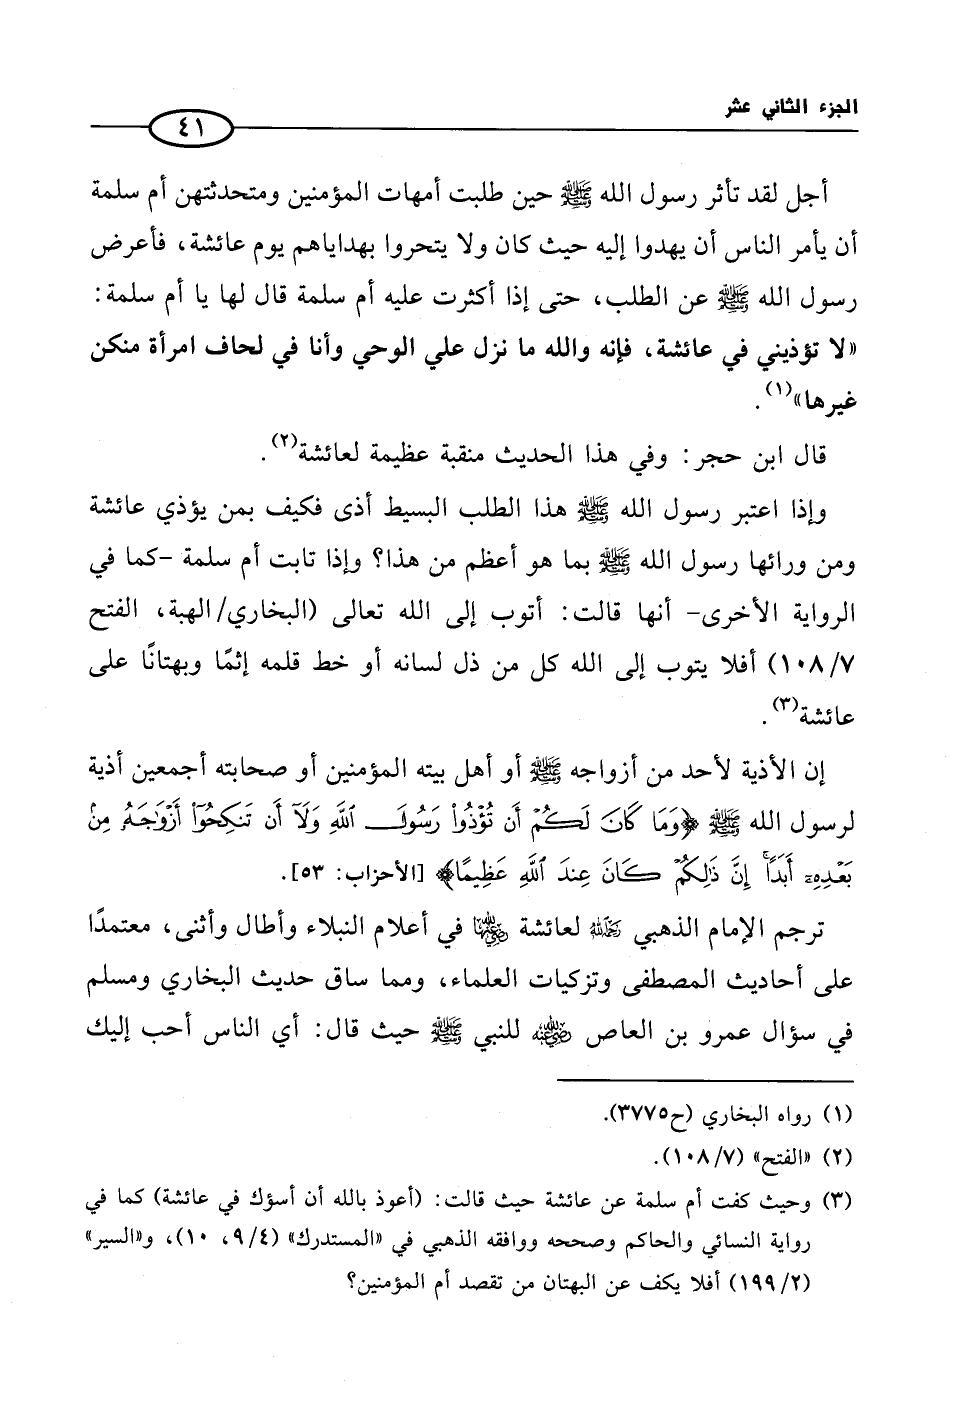 الجزء الثاني عشر
٤١
أجل لقد تأثر رسول الله ﷺ حين طلبت أمهات المؤمنين ومتحدثتهن أم سلمة
أن يأمر الناس أن يهدوا إليه حيث كان ولا يتحروا بهداياهم يوم عائشة، فأعرض
رسول الله ﷺ عن الطلب، حتى إذا أكثرت عليه أم سلمة قال لها يا أم سلمة:
«لا تؤذيني في عائشة، فإنه والله ما نزل علي الوحي وأنا في لحاف امرأة منكن
غيرها»(١).
قال ابن حجر: وفي هذا الحديث منقبة عظيمة لعائشة(٢).
وإذا اعتبر رسول الله ﷺ هذا الطلب البسيط أذى فكيف بمن يؤذي عائشة
ومن ورائها رسول الله ﷺ بما هو أعظم من هذا؟ وإذا تابت أم سلمة -كما في
الرواية الأخرى- أنها قالت: أتوب إلى الله تعالى (البخاري/الهبة، الفتح
١٠٨/٧) أفلا يتوب إلى الله كل من ذل لسانه أو خط قلمه إثمًا وبهتانًا على
عائشة(٣).
إن الأذية لأحد من أزواجه ﷺ أو أهل بيته المؤمنين أو صحابته أجمعين أذية
لرسول الله ﷺ ﴿وَمَا كَانَ لَكُمْ أَن تُؤْذُواْ رَسُولَ ٱللَّهِ وَلَآ أَن تَنكِحُوٓاْ أَزْوَٰجَهُۥ مِنۢ
بَعْدِهِۦٓ أَبَدًاۚ إِنَّ ذَٰلِكُمْ كَانَ عِندَ ٱللَّهِ عَظِيمًا﴾ [الأحزاب: ٥٣].
ترجم الإمام الذهبي رحمه الله لعائشة رضي الله عنها في أعلام النبلاء وأطال وأثنى، معتمدًا
على أحاديث المصطفى وتزكيات العلماء، ومما ساق حديث البخاري ومسلم
في سؤال عمرو بن العاص رضي الله عنه للنبي ﷺ حيث قال: أي الناس أحب إليك
(١) رواه البخاري (ح٣٧٧٥).
(٢) «الفتح» (١٠٨/٧).
(٣) وحيث كفت أم سلمة عن عائشة حيث قالت: (أعوذ بالله أن أسؤك في عائشة) كما في
رواية النسائي والحاكم وصححه ووافقه الذهبي في «المستدرك» (٩/٤، ١٠)، و«السير»
(١٩٩/٢) أفلا يكف عن البهتان من تقصد أم المؤمنين؟